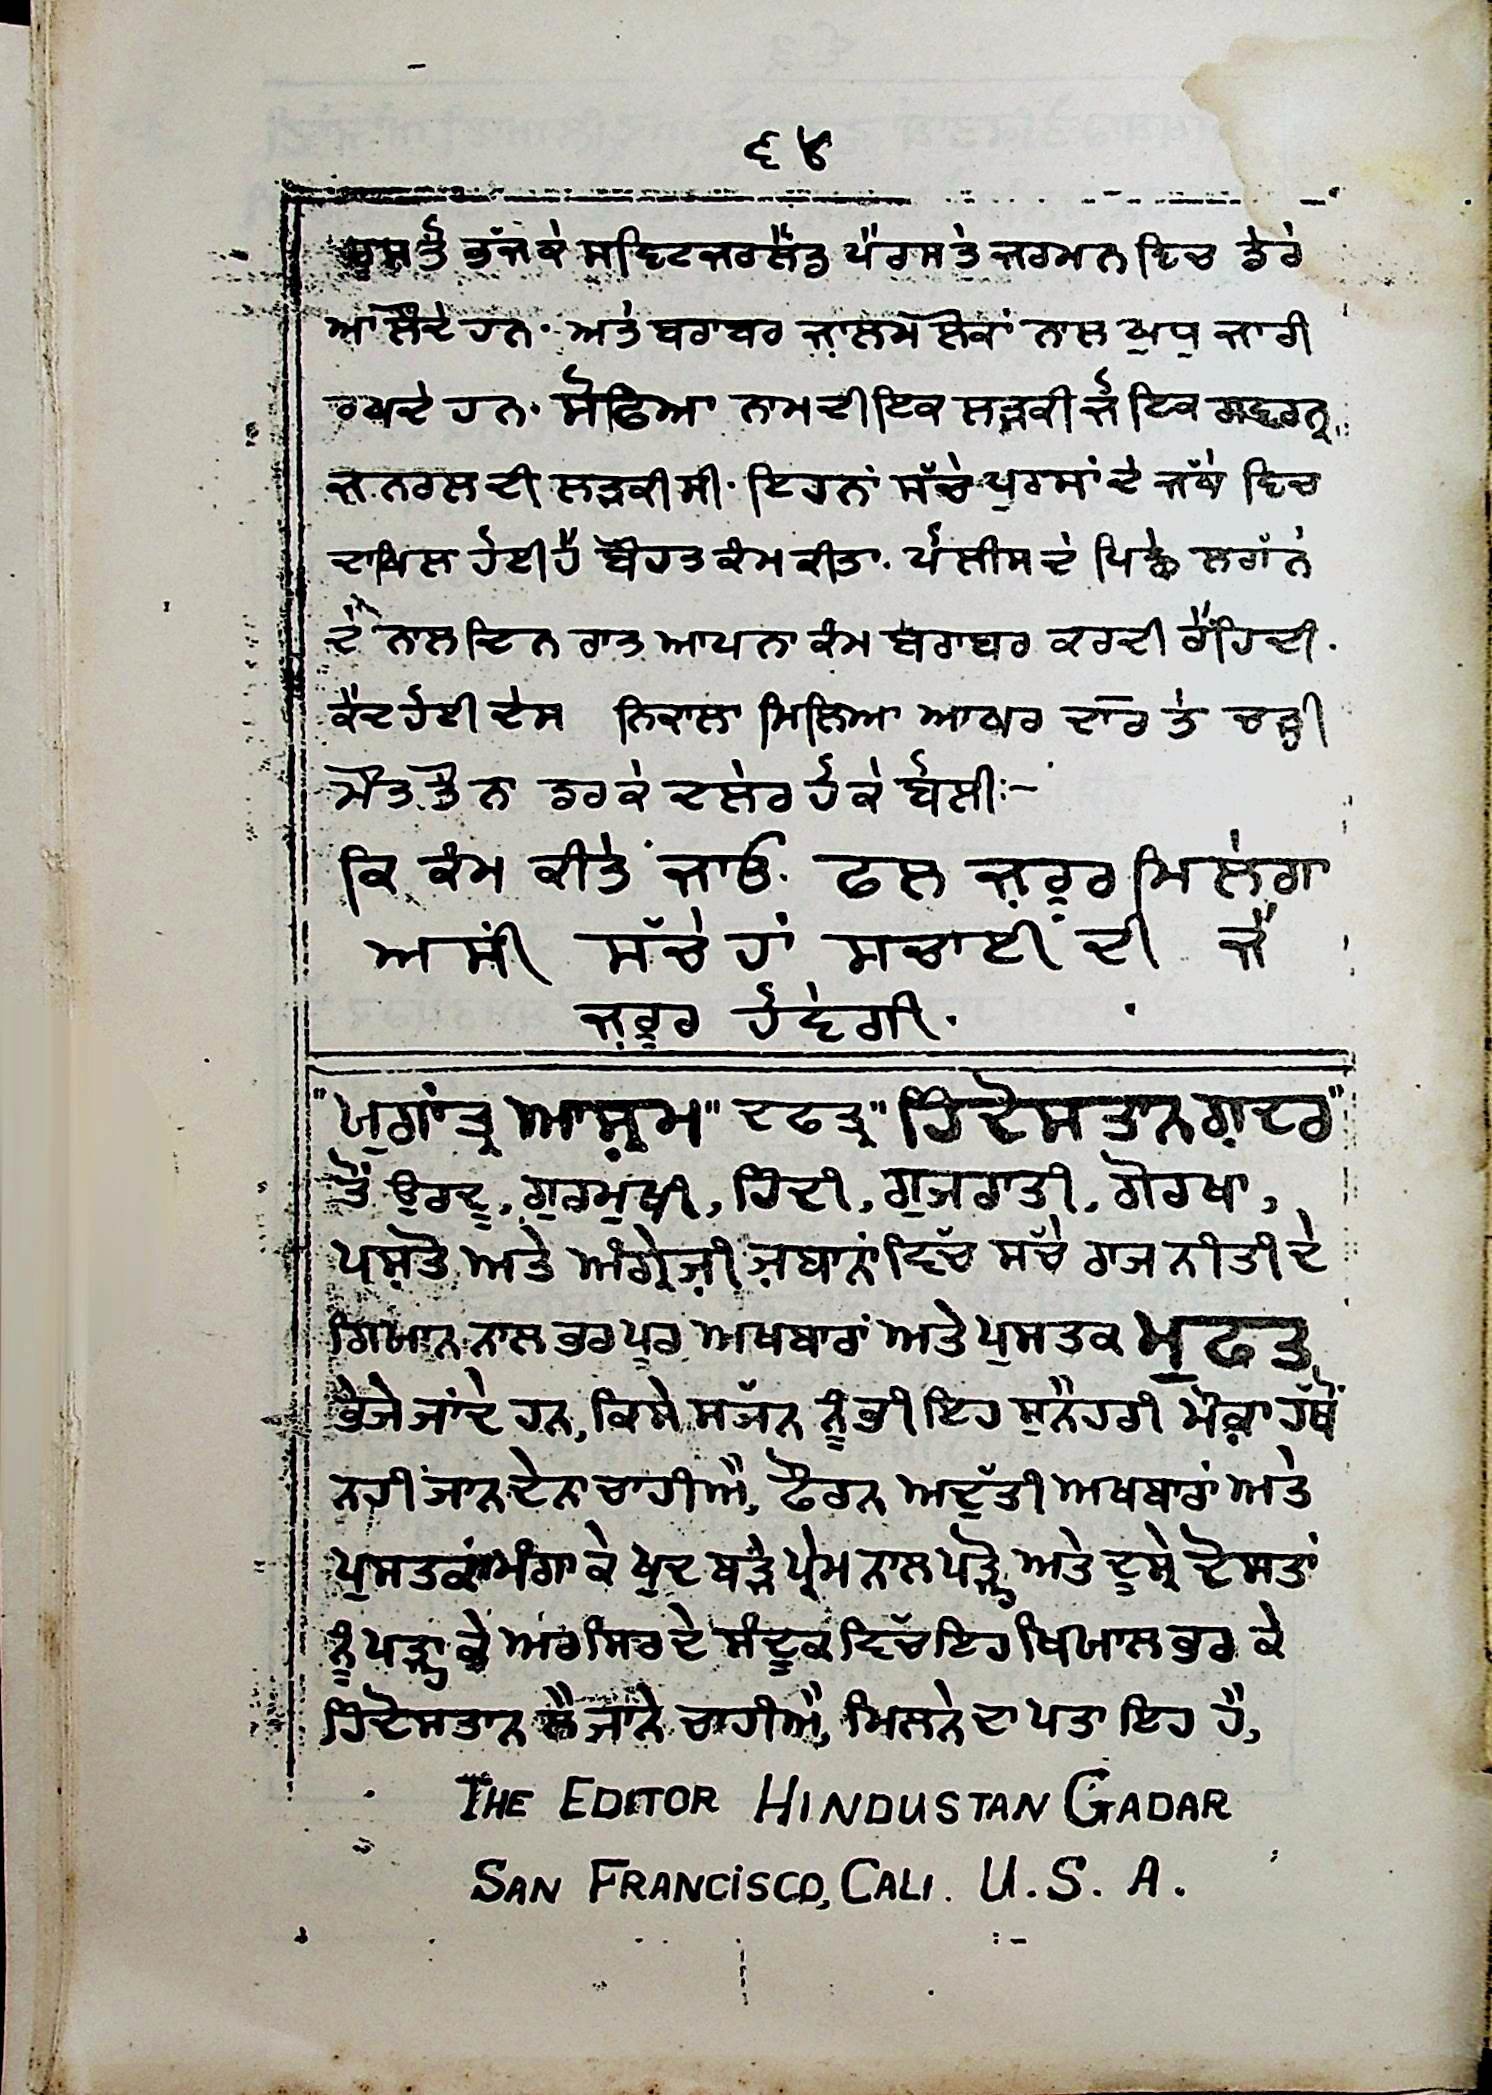 ੬੪
ਰੂਸ ਤੋਂ ਭੱਜ ਕੇ ਸਵਿਟਜ਼ਰਲੈਂਡ ਪੈਰਸ ਤੇ ਜਰਮਨ ਵਿਚ ਡੇਰੇ
ਆ ਲੌਂਦੇ ਹਨ. ਅਤੇ ਬਰਾਬਰ ਜ਼ਾਲਮ ਲੋਕਾਂ ਨਾਲ ਯੁਧ ਜਾਰੀ
ਰਖਦੇ ਹਨ. ਸੋਫਿਆ ਨਾਮ ਦੀ ਇਕ ਲੜਕੀ ਜੋ ਇਕ ਗਵਰਨਰ
ਜਨਰਲ ਦੀ ਲੜਕੀ ਸੀ. ਇਹਨਾਂ ਸੱਚੇ ਪੁਰਸਾਂ ਦੇ ਜੱਥੇ ਵਿਚ
ਦਾਖਿਲ ਹੋਈ ਹੈ ਬੌਹਤ ਕੰਮ ਕੀਤਾ. ਪੋਲੀਸ ਦੇ ਪਿਛੇ ਲਗੱਨੇ
ਦੇ ਨਾਲ ਦਿਨ ਰਾਤ ਆਪਨਾ ਕੰਮ ਬਰਾਬਰ ਕਰਦੀ ਰੈਂਹਿਦੀ.
ਕੈਦ ਹੋਈ ਦੇਸ ਨਿਕਾਲਾ ਮਿਲਿਆ ਆਖਰ ਦਾਰ ਤੇ ਚੜ੍ਹੀ
ਮੌਤ ਤੋਂ ਨਾ ਡਰਕੇ ਦਲੇਰ ਹੋਕੇ ਬੋਲੀ:-
ਕਿ ਕੰਮ ਕੀਤੇ ਜਾਓ. ਫਲ ਜ਼ਰੂਰ ਮਿਲੇਗਾ
ਅਸੀਂ ਸੱਚੇ ਹਾਂ ਸਚਾਈ ਦੀ ਜੈ
ਜ਼ਰੂਰ ਹੋਵੇਗੀ.
"ਯੁਗਾਂਤ੍ਰ ਆਸ਼੍ਰਮ" ਦਫਤ੍ਰ "ਹਿੰਦੋਸਤਾਨ ਗ਼ਦਰ"
ਤੋਂ ਉਰਦੂ, ਗੁਰਮੁਖੀ, ਹਿੰਦੀ, ਗੁਜਰਾਤੀ, ਗੋਰਖਾ,
ਪਸ਼ਤੋ ਅਤੇ ਅੰਗ੍ਰੇਜ਼ੀ ਜ਼ਬਾਨਾਂ ਵਿੱਚ ਸੱਚੇ ਰਾਜਨੀਤੀ ਦੇ
ਗਿਯਾਨ ਨਾਲ ਭਰਪੂਰ ਅਖਬਾਰਾਂ ਅਤੇ ਪੁਸਤਕ ਮੁਫਤ
ਭੇਜੇ ਜਾਂਦੇ ਹਨ, ਕਿਸੇ ਸਜੱਨ ਨੂੰ ਭੀ ਇਹ ਸੁਨੈਹਰੀ ਮੌਕ਼ਾ ਹੱਥੋਂ
ਨਹੀਂ ਜਾਨ ਦੇਨਾ ਚਾਹੀਐ, ਫੌਰਨ ਅਦੁੱਤੀ ਅਖਬਾਰਾਂ ਅਤੇ
ਪੁਸਤਕਾਂ ਮੰਗਾ ਕੇ ਖੁਦ ਬੜੇ ਪ੍ਰੇਮ ਨਾਲ ਪੜ੍ਹੋ ਅਤੇ ਦੂਸ੍ਰੇ ਦੋਸਤਾਂ
ਨੂੰ ਪੜ੍ਹਾ ਕੇ ਅਰ ਸਿਰ ਦੇ ਸੰਦੂਕ ਵਿੱਚ ਇਹ ਖਿਯਾਲ ਭਰ ਕੇ
ਹਿੰਦੋਸਤਾਨ ਲੈ ਜਾਨੇ ਚਾਹੀਐ, ਮਿਲਨੇ ਦਾ ਪਤਾ ਇਹ ਹੈ,
THE EDITOR HINDUSTAN GADAR
SAN FRANCISCO, CALI. U.S.A.